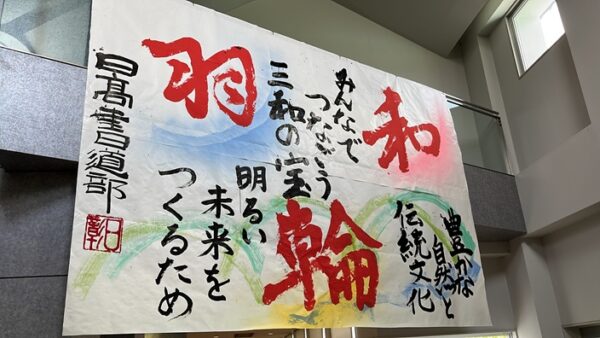 和
豊かな
自然と
伝統文化
みんなで
つなごう
三和の宝
輪
明るい
未来を
つくるため
羽
日髙書道部